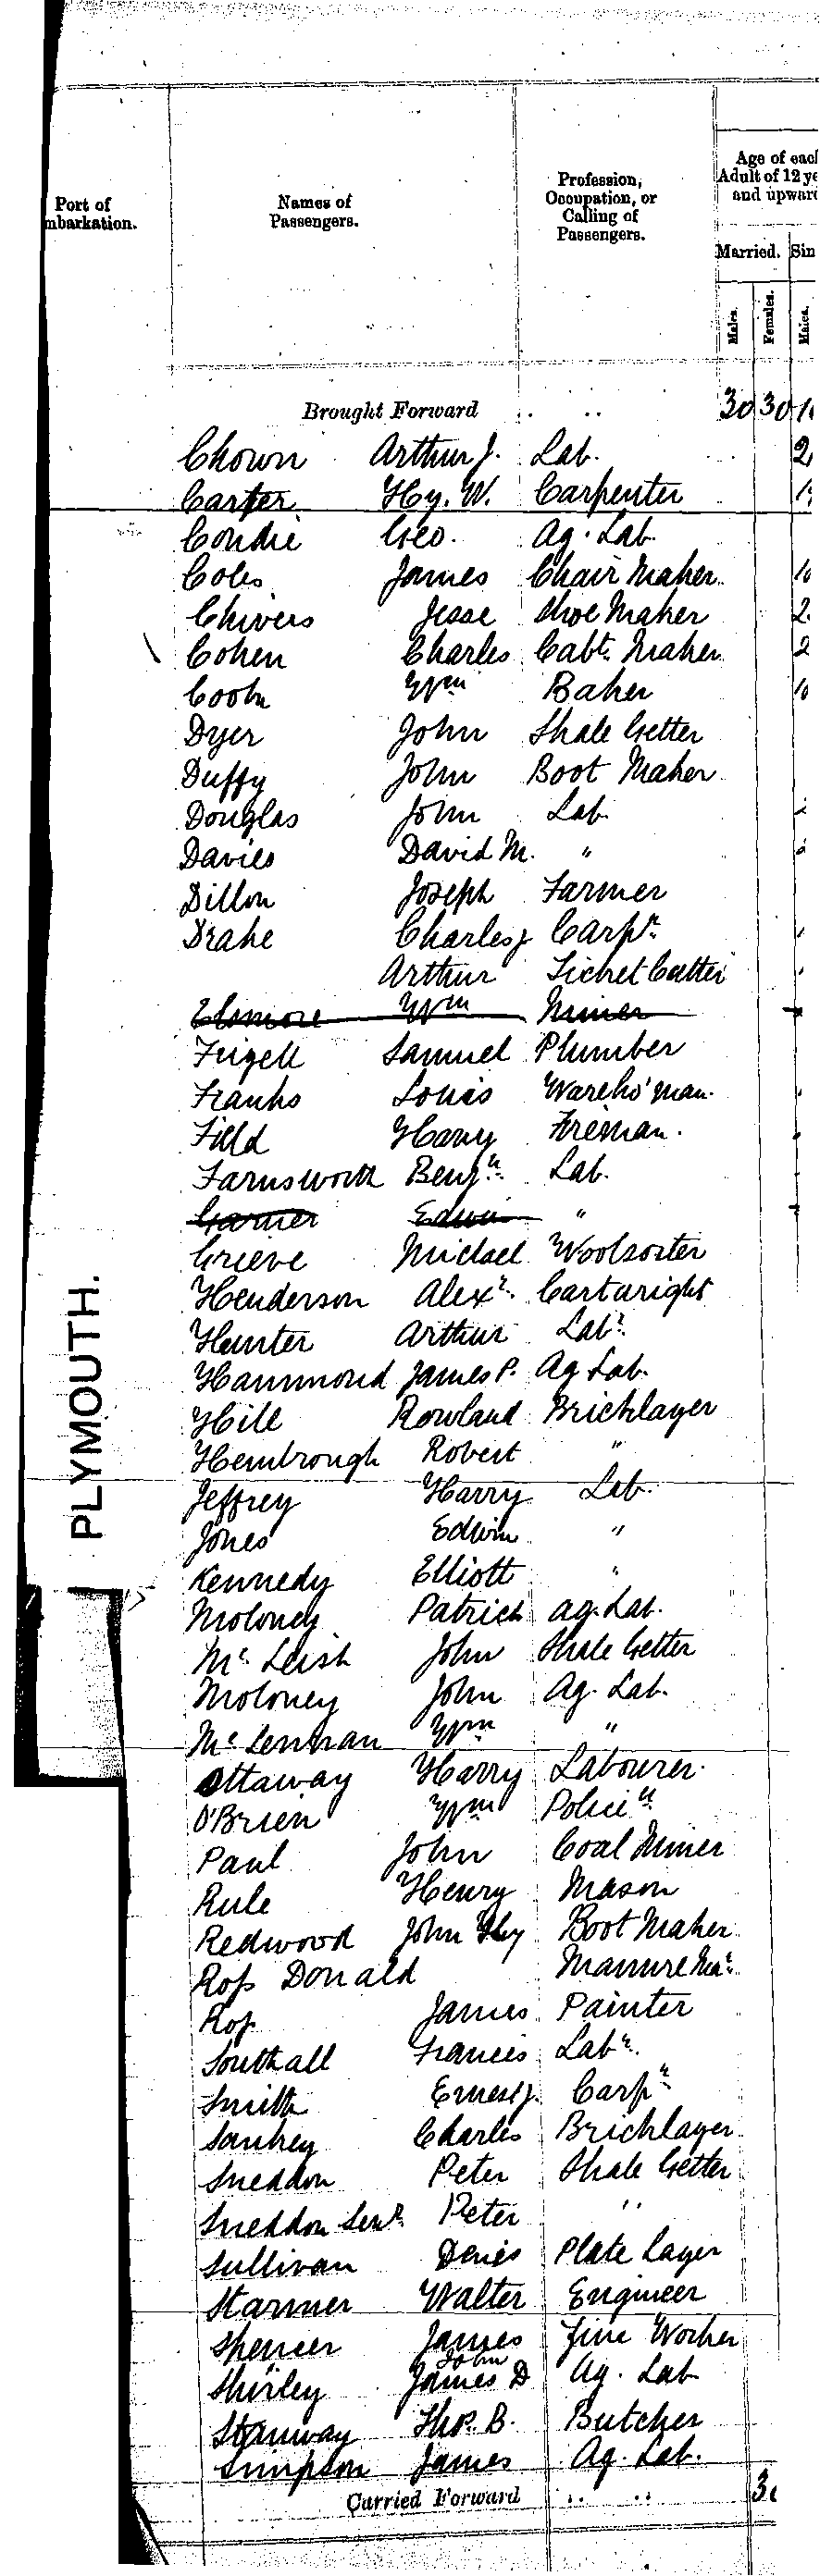 Port of
mbarkation.
Names of
Passengers.
Profession,
Occupation, or
Calling of
Passengers.
Age of eac
Adult of 12 ye
and upwar
Married. Sin
Males. Females. Males.
Brought Forward .. .. 30 30
Chown Arthur J. Lab.
Carter Hy. W. Carpenter
Condie Geo. Ag. Lab.
Coles James Chair Maker
Chivers Jesse Shoe Maker
Cohen Charles Cabt. Maker
Wm Baker
Dyer John Shale Getter
Duffy John Boot Maker
Douglas John Lab.
Davies David M. "
Dillon Joseph Farmer
Drake Charles J Carpr.
Arthur Ticket Cutter
Elsmore Wm Miner
Frizell Samuel Plumber
Franks Louis Wareho'man.
Field Harry Fireman.
Farnsworth Benjn. Lab.
Garner Edwin "
Grieve Michael Woolsorter
Henderson Alexr. Cartwright
Hunter Arthur Labr.
Hammond James P. Ag Lab.
Hill Rowland Bricklayer
Hembrough Robert "
Jeffrey Harry Lab.
Jones Edwin "
Kennedy Elliott "
Moloney Patrick Ag. Lab.
McLeish John Shale Getter
Moloney John Ag. Lab.
McLennan Wm "
Ottaway Harry Labourer.
O'Brien Wm Policen
Paul John Coal Miner
Rule Henry Mason
Redwood John Hy Boot Maker
Ross Donald Manure Mar.
Ross James Painter
Southall Francis Labr.
Smith Ernest J. Carpr.
Sankey Charles Bricklayer
Sneddon Peter Shale Getter
Sneddon Senr. Peter "
Sullivan Denis Plate Layer
Starmer Walter Engineer
Spencer James Zinc Worker
John
Shirley James D Ag. Lab
Stanway Thos. B. Butcher
Simpson James Ag. Lab.
Carried Forward .. ..
PLYMOUTH.